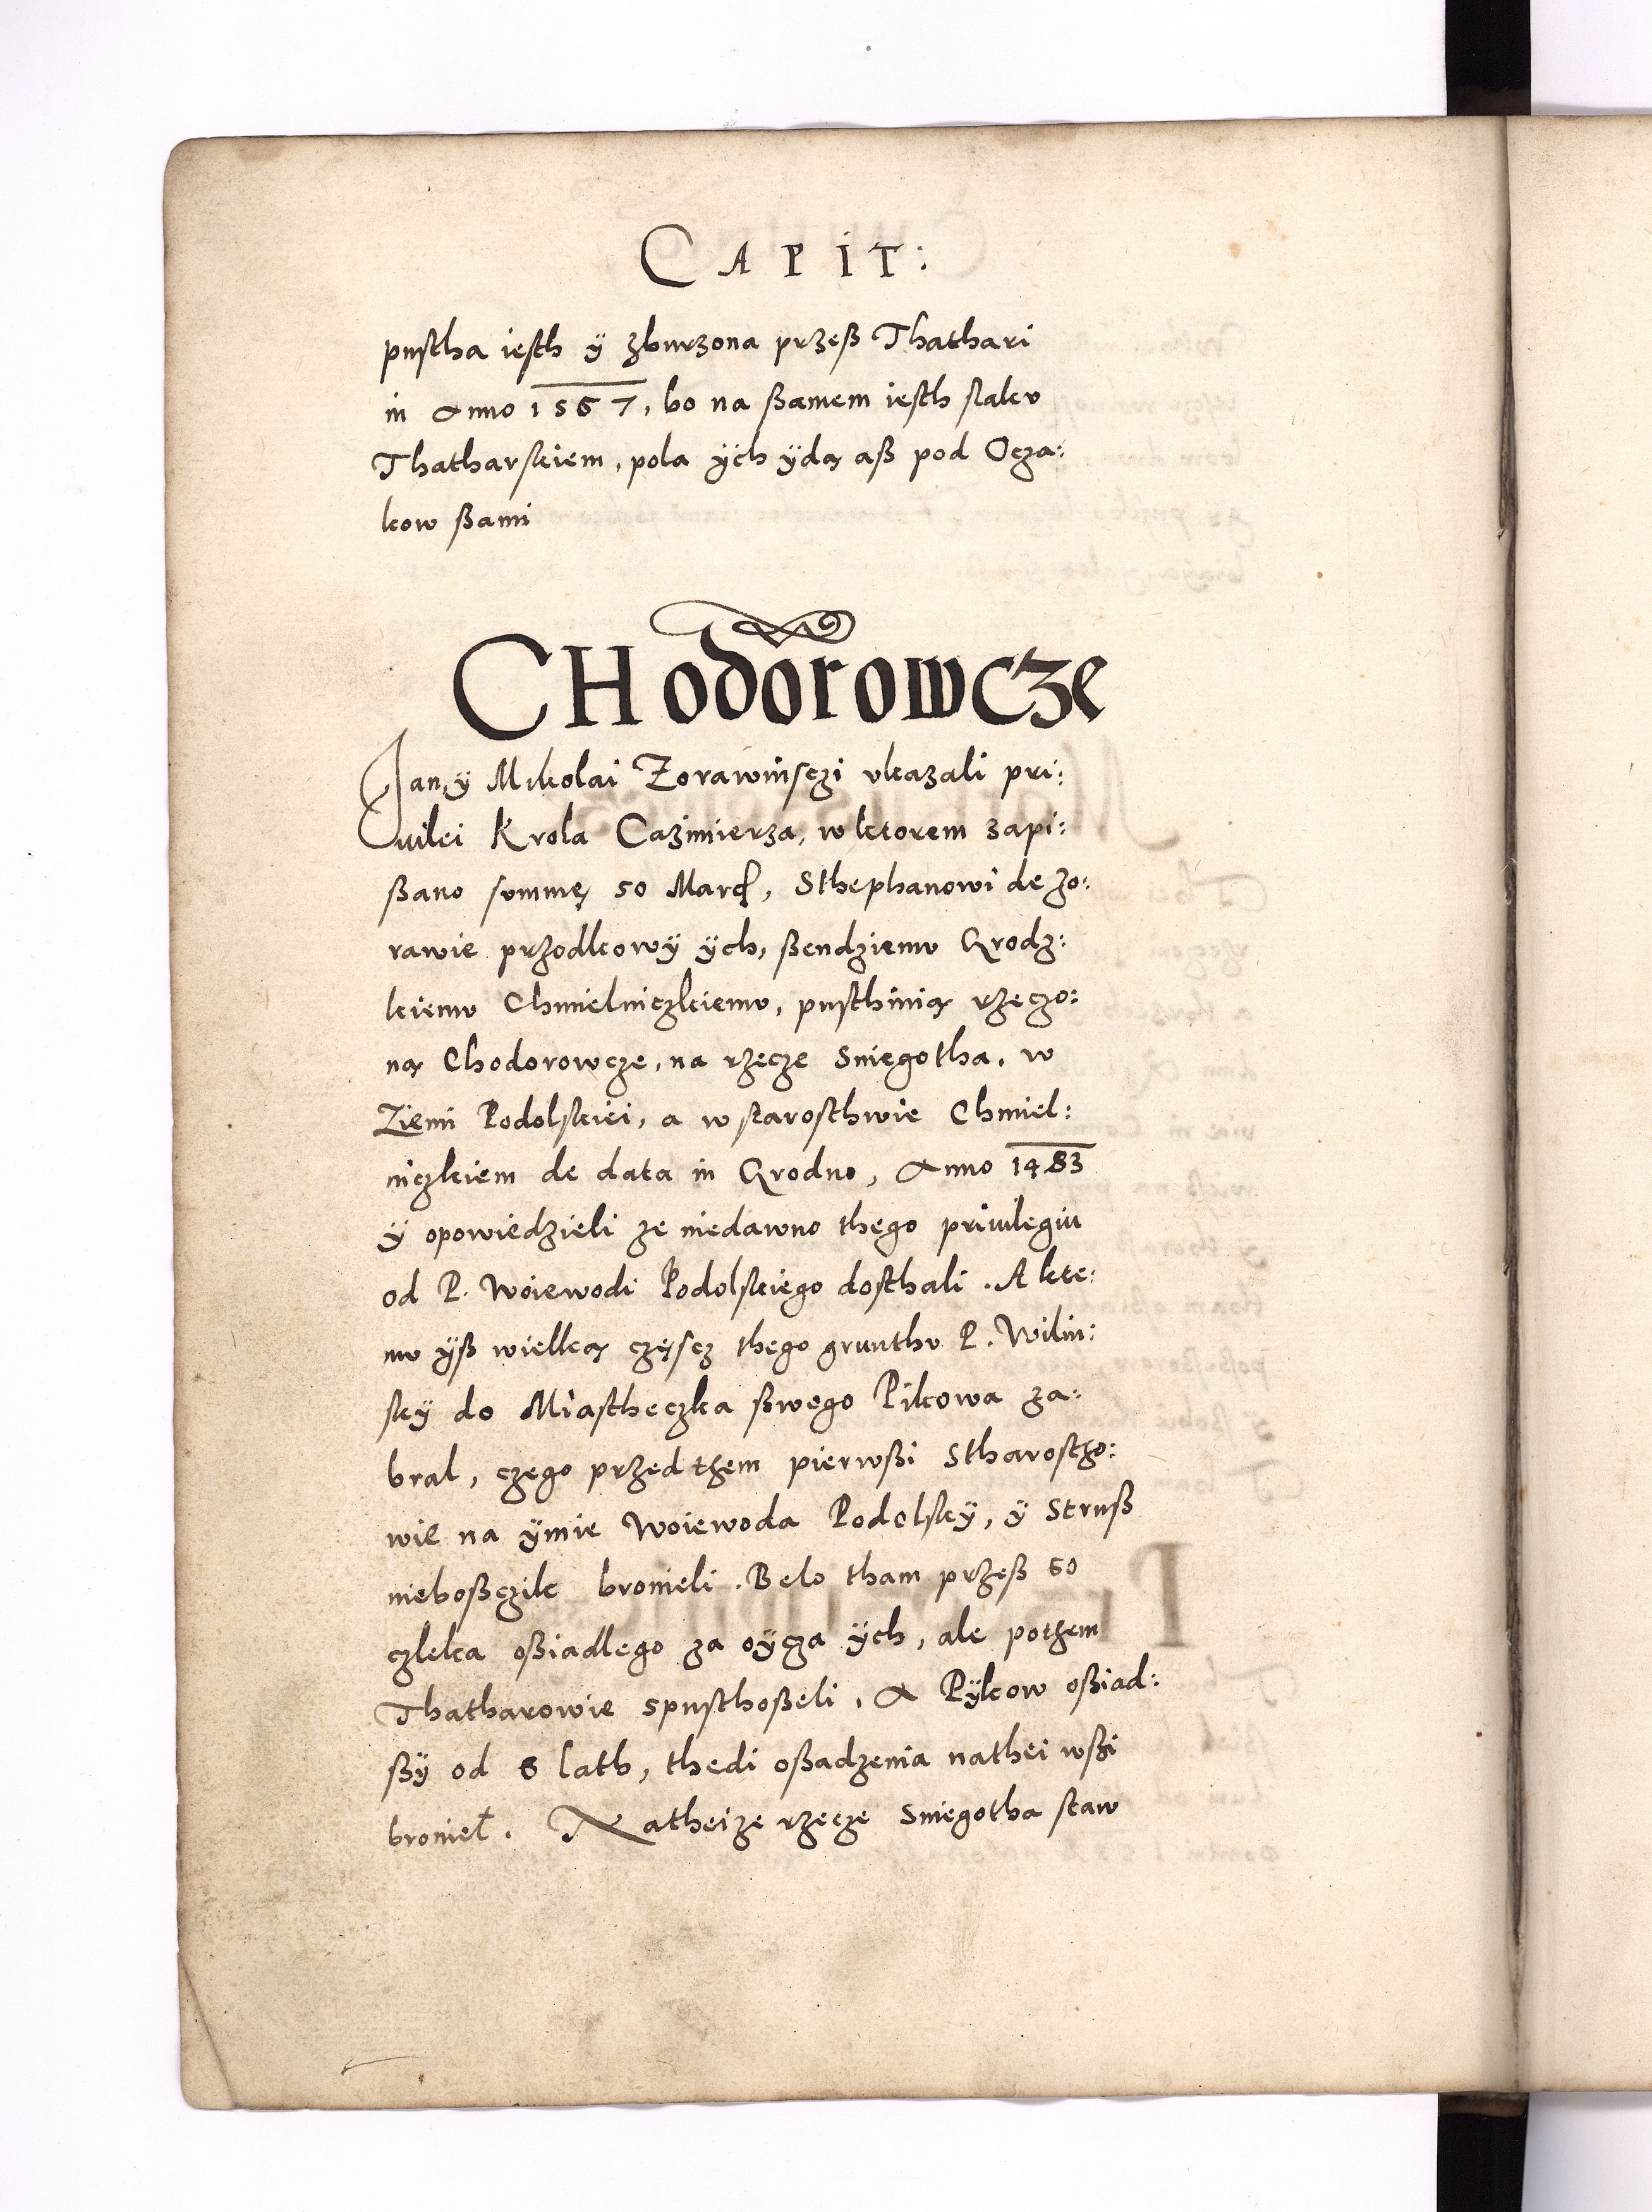 CAPIT:
pustha iesth ÿ zburzona przeß Thathari
in Anno 1567, bo na ßamem iesth slaku
Thatharskiem, pola ÿch ÿdą aß pod Ocza:
kow ßami
CHodorowcze
Jan ÿ Mikolai Zorawinsczi ukazali pri:
uilei Krola Cazimierza, w ktorem zapi:
ßano summę 50 Marc, Sthephanowi de Zo:
rawie przodkowÿ ÿch, ßendziemu Grodz:
kiemu Chmielniczkiemu, pusthinią rzeczo:
ną Chodorowcze, na rzecze Sniegotha, w
Ziemi Podolskiei, a w starosthwie Chmiel:
niczkiem de data in Grodno, Anno 1483
ÿ opowiedzieli ze niedawno thego priuilegiu
od P. Woiewodi Podolskiego dosthali. A kte:
mu ÿß wielką częscz thego grunthu P. Wilin:
skÿ do Miastheczka ßwego Pikowa za:
bral, czego przed them pierwßi Stharostho:
wie na ÿmie Woiewoda Podolskÿ, ÿ Struß
nieboßczik bronieli. Belo tham przeß 60
czleka oßiadlego za oÿcza ÿch, ale pothem
Thatharowie spusthoßeli. A Pÿkow oßiad:
ßÿ od 6 lath, thedi oßadzenia nathei wßi
broniel. Natheize rzecze Sniegotha staw